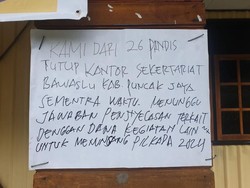 KAMI DARI 26 PANDIS
TUTUP KANTOR SEKERTARIAT
BAWASLU KAB PUNCAK JAYA
SEMENTRA WAKTU MENUNGGU
JAWABAN PENJYECASAN TERKAIT
DENGGAN DANA KEGIATAN LAIN
UNTUK MENUNSANG PILKADA 2024